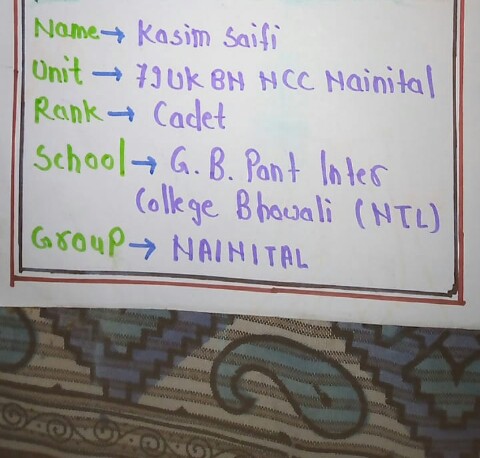 Name → Kasim Saifi
Unit → 79 UK BN NCC Nainital
Rank → Cadet
School → G. B. Pant Inter
College Bhowali (NTL)
Group → NAINITAL